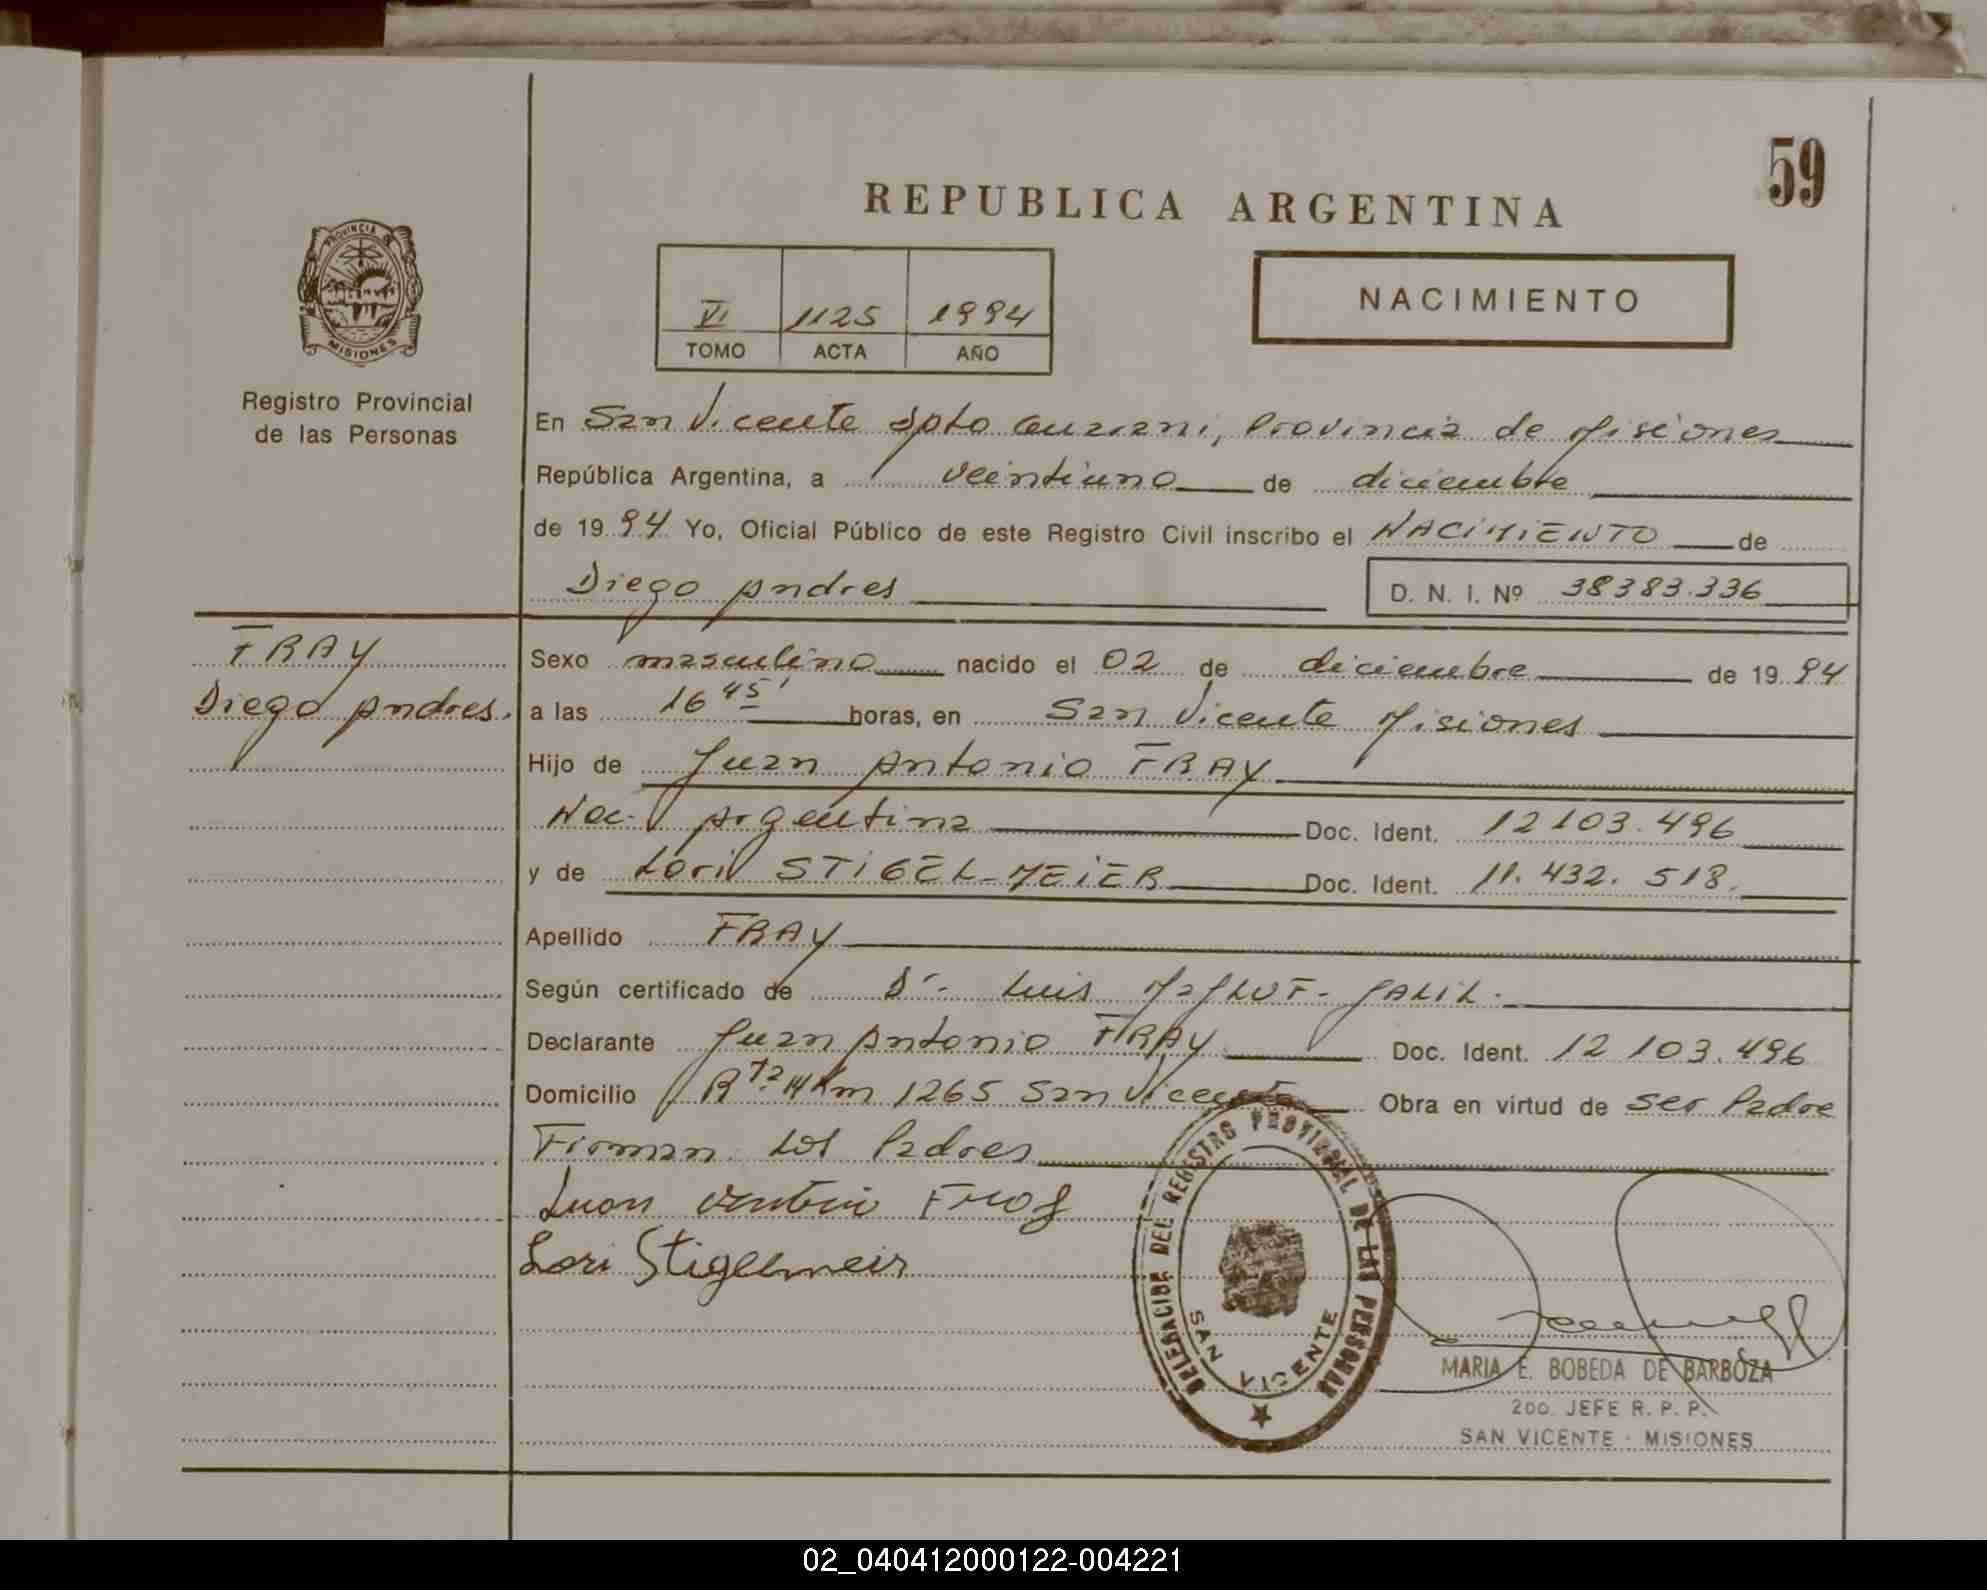 59
REPUBLICA ARGENTINA
PROVINCIA
MISIONES
VI 1125 1994
TOMO ACTA AÑO
NACIMIENTO
Registro Provincial
de las Personas
En San Vicente dpto Guarani, Provincia de Misiones
República Argentina, a veintiuno de diciembre
de 1994 Yo, Oficial Público de este Registro Civil inscribo el NACIMIENTO de
Diego Andres D. N. I. Nº 38383.336
FRAY
Diego Andres.
Sexo masculino nacido el 02 de diciembre de 1994
a las 16 45' horas, en San Vicente Misiones
Hijo de Juan Antonio FRAY
Nac. Argentina Doc. Ident. 12103.496
y de Lori STIGEL-MEIER Doc. Ident. 11.432.518.
Apellido FRAY
Según certificado de Dr. Luis GALIL.
Declarante Juan Antonio FRAY Doc. Ident. 12 103.496
Domicilio Rta 14 Km 1265 San Vicente Obra en virtud de ser Padre
Firman los Padres
Juan Fray
Lori Stigelmeir
DELEGACION DEL REGISTRO PROVINCIAL DE LAS PERSONAS
SAN VICENTE
MARIA E. BOBEDA DE BARBOZA
2do. JEFE R. P. P.
SAN VICENTE - MISIONES
02_040412000122-004221